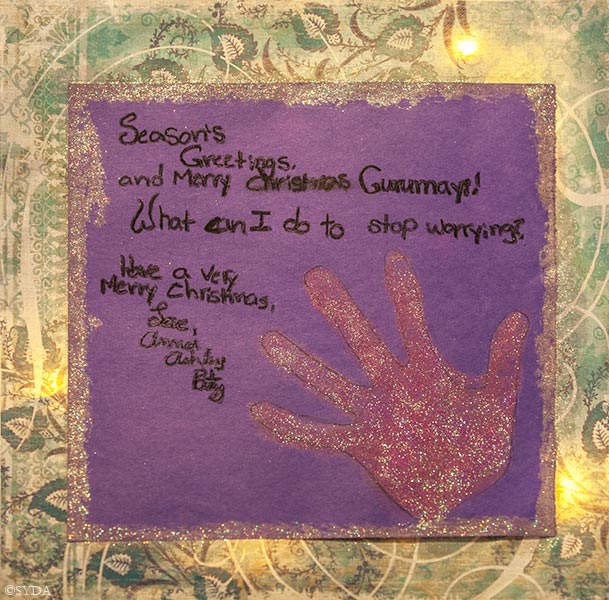 Season's
Greetings.
and Merry Christmas Gurumayi!
What can I do to stop worrying?
Have a very
Merry Christmas,
Love,
©SYDA